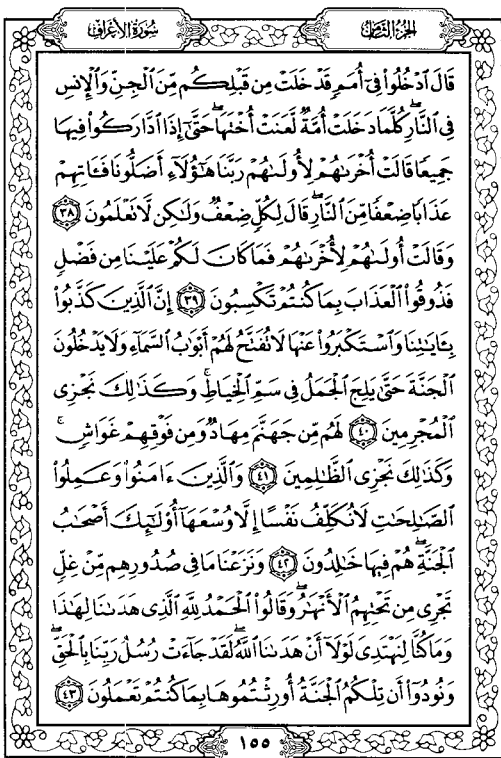 سُورَةُ الْأَعْرَافِ
الجُزْءُ الثَّامِنُ
قَالَ ٱدْخُلُوا۟ فِىٓ أُمَمٍ قَدْ خَلَتْ مِن قَبْلِكُم مِّنَ ٱلْجِنِّ وَٱلْإِنسِ
فِى ٱلنَّارِ ۖ كُلَّمَا دَخَلَتْ أُمَّةٌ لَّعَنَتْ أُخْتَهَا ۖ حَتَّىٰٓ إِذَا ٱدَّارَكُوا۟ فِيهَا
جَمِيعًا قَالَتْ أُخْرَىٰهُمْ لِأُولَىٰهُمْ رَبَّنَا هَـٰٓؤُلَآءِ أَضَلُّونَا فَـَٔاتِهِمْ
عَذَابًا ضِعْفًا مِّنَ ٱلنَّارِ ۖ قَالَ لِكُلٍّ ضِعْفٌ وَلَـٰكِن لَّا تَعْلَمُونَ ٣٨
وَقَالَتْ أُولَىٰهُمْ لِأُخْرَىٰهُمْ فَمَا كَانَ لَكُمْ عَلَيْنَا مِن فَضْلٍ
فَذُوقُوا۟ ٱلْعَذَابَ بِمَا كُنتُمْ تَكْسِبُونَ ٣٩ إِنَّ ٱلَّذِينَ كَذَّبُوا۟
بِـَٔايَـٰتِنَا وَٱسْتَكْبَرُوا۟ عَنْهَا لَا تُفَتَّحُ لَهُمْ أَبْوَٰبُ ٱلسَّمَآءِ وَلَا يَدْخُلُونَ
ٱلْجَنَّةَ حَتَّىٰ يَلِجَ ٱلْجَمَلُ فِى سَمِّ ٱلْخِيَاطِ ۚ وَكَذَٰلِكَ نَجْزِى
ٱلْمُجْرِمِينَ ٤٠ لَهُم مِّن جَهَنَّمَ مِهَادٌ وَمِن فَوْقِهِمْ غَوَاشٍ ۚ
وَكَذَٰلِكَ نَجْزِى ٱلظَّـٰلِمِينَ ٤١ وَٱلَّذِينَ ءَامَنُوا۟ وَعَمِلُوا۟
ٱلصَّـٰلِحَـٰتِ لَا نُكَلِّفُ نَفْسًا إِلَّا وُسْعَهَآ أُو۟لَـٰٓئِكَ أَصْحَـٰبُ
ٱلْجَنَّةِ ۖ هُمْ فِيهَا خَـٰلِدُونَ ٤٢ وَنَزَعْنَا مَا فِى صُدُورِهِم مِّنْ غِلٍّ
تَجْرِى مِن تَحْتِهِمُ ٱلْأَنْهَـٰرُ ۖ وَقَالُوا۟ ٱلْحَمْدُ لِلَّهِ ٱلَّذِى هَدَىٰنَا لِهَـٰذَا
وَمَا كُنَّا لِنَهْتَدِىَ لَوْلَآ أَنْ هَدَىٰنَا ٱللَّهُ ۖ لَقَدْ جَآءَتْ رُسُلُ رَبِّنَا بِٱلْحَقِّ ۖ
وَنُودُوٓا۟ أَن تِلْكُمُ ٱلْجَنَّةُ أُورِثْتُمُوهَا بِمَا كُنتُمْ تَعْمَلُونَ ٤٣
١٥٥